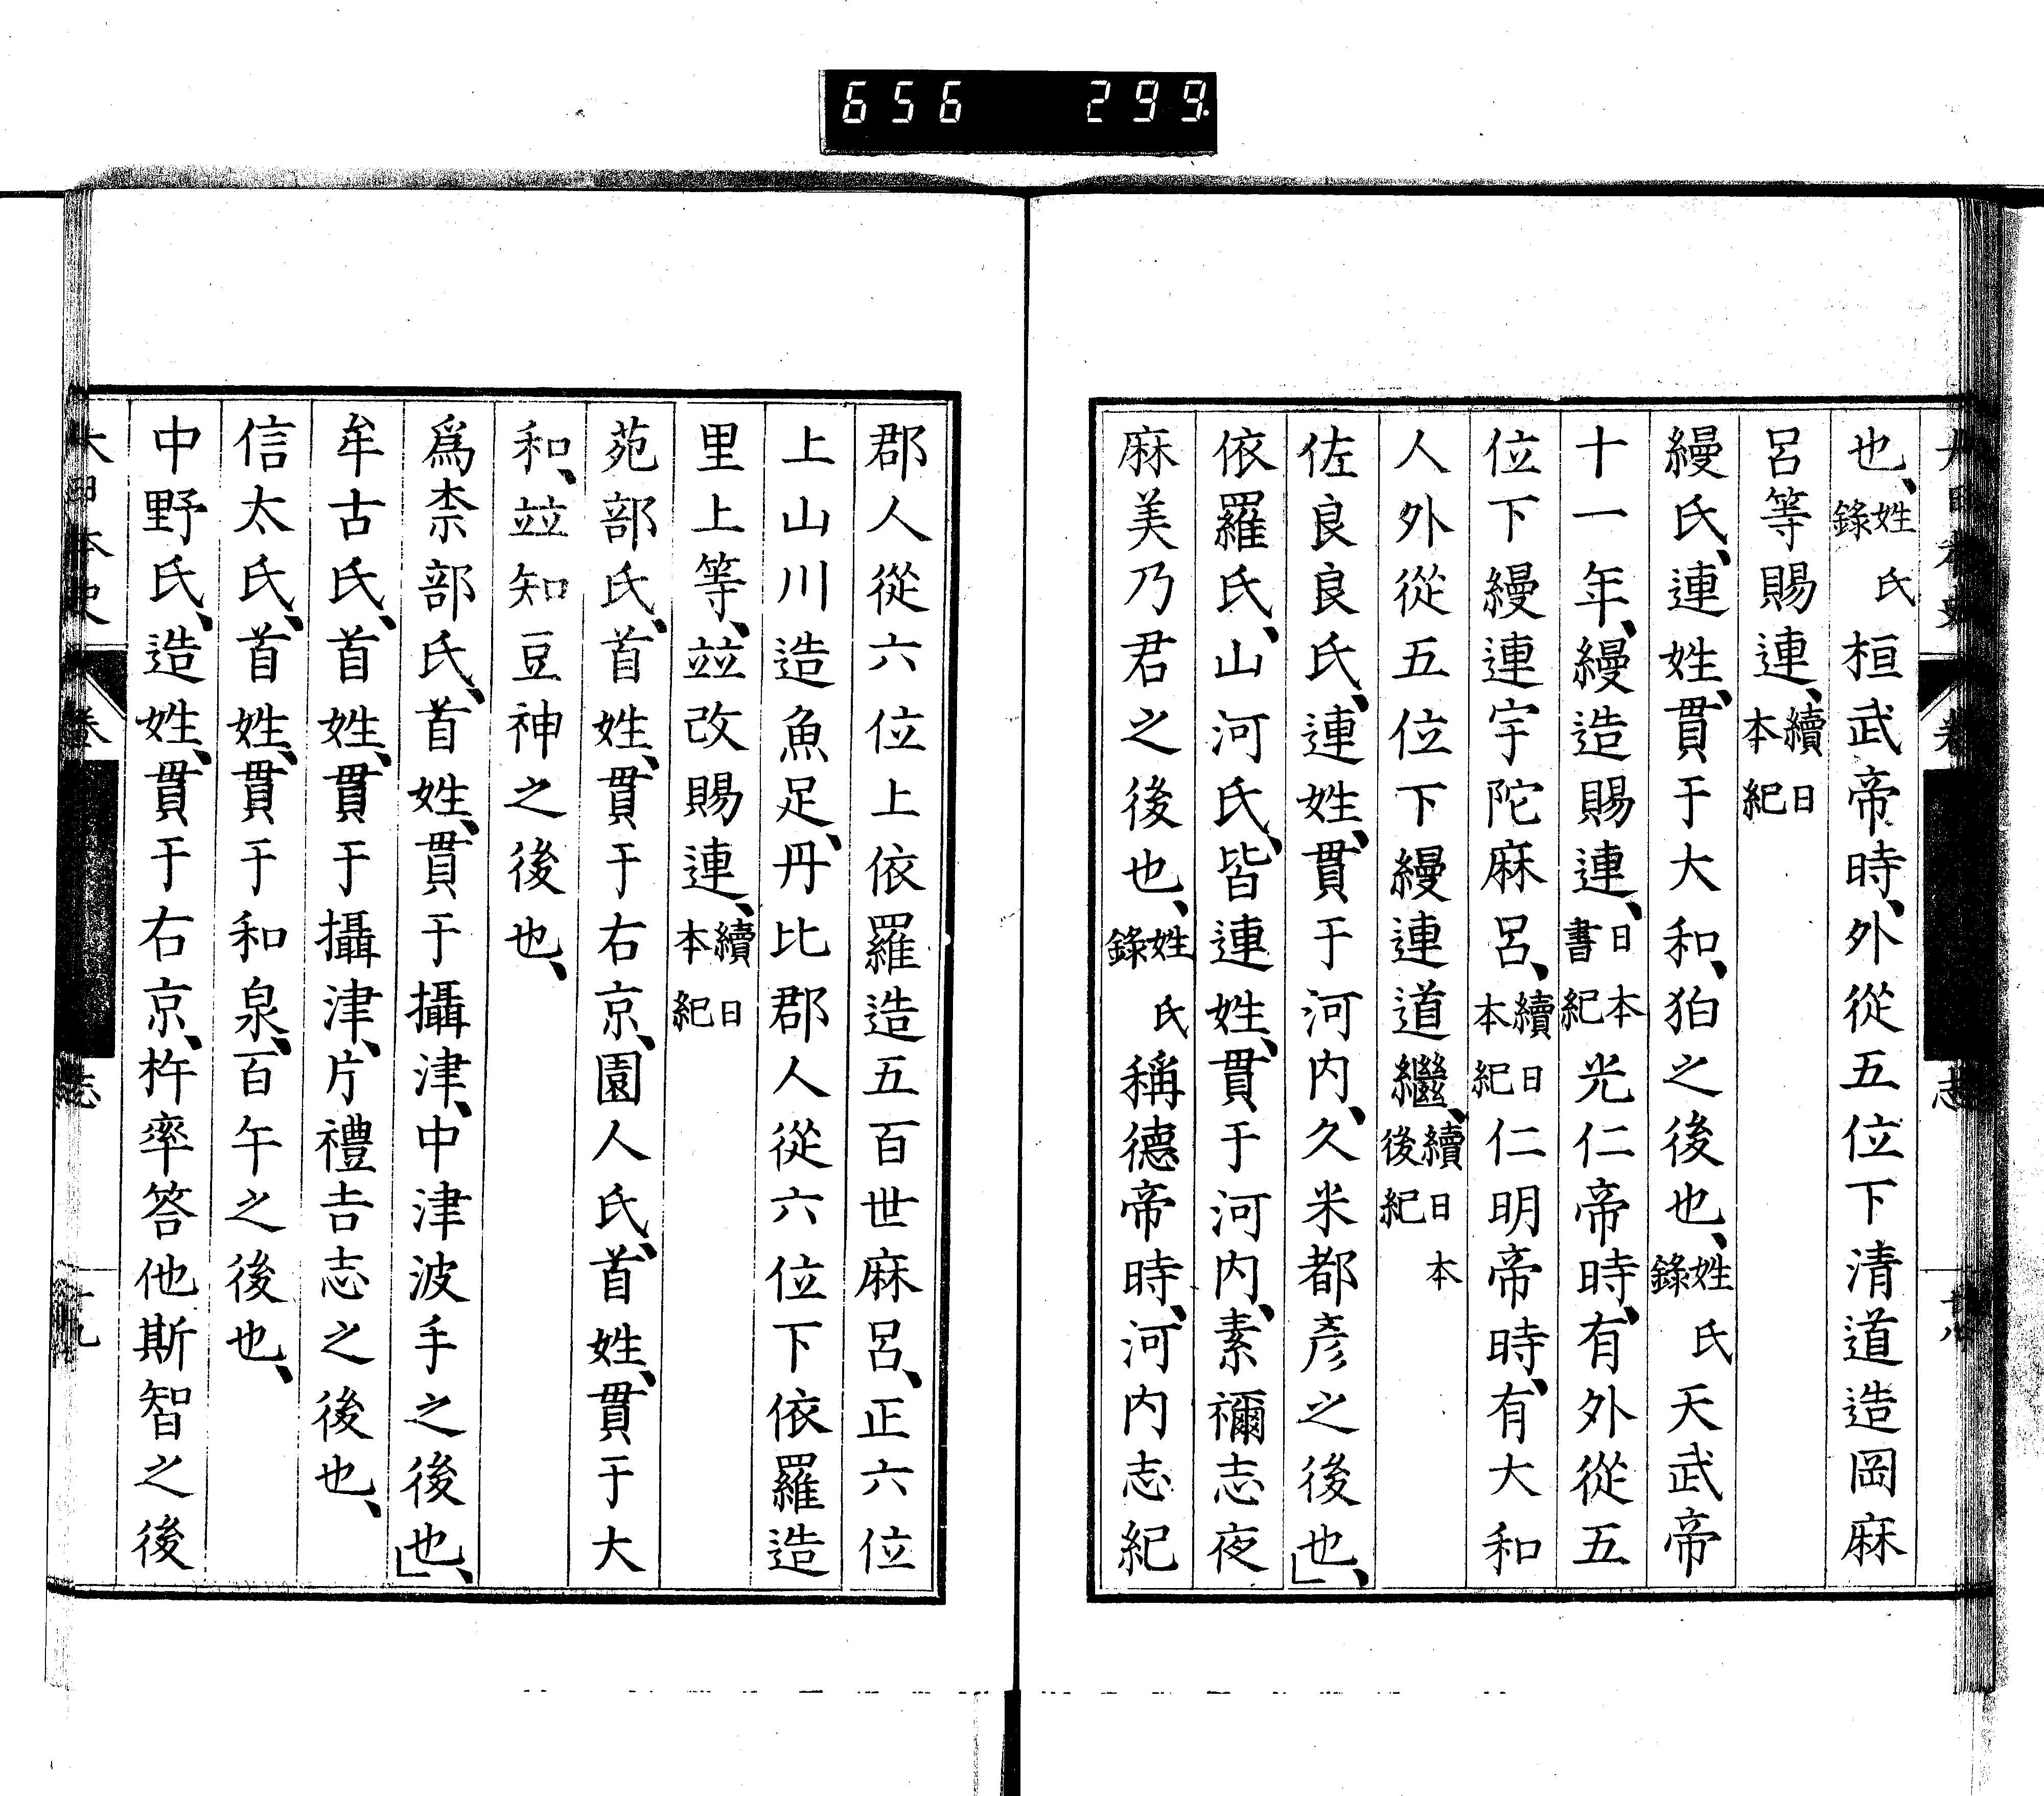 656 299.
也、姓氏錄桓武帝時、外從五位下清道造岡麻
呂等賜連、續日本紀
縵氏、連姓、貫于大和、狛之後也、姓氏錄天武帝
十一年、縵造賜連、日本書紀光仁帝時、有外從五
位下縵連宇陀麻呂、續日本紀仁明帝時、有大和
人外從五位下縵連道繼、續日本後紀
佐良良氏、連姓、貫于河内、久米都彥之後也、」
依羅氏、山河氏、皆連姓、貫于河内、素禰志夜
麻美乃君之後也、姓氏錄稱德帝時、河内志紀
郡人從六位上依羅造五百世麻呂、正六位
上山川造魚足、丹比郡人從六位下依羅造
里上等、竝改賜連、續日本紀
苑部氏、首姓、貫于右京、園人氏、首姓、貫于大
和、竝知豆神之後也、
爲柰部氏、首姓、貫于攝津、中津波手之後也、」
牟古氏、首姓、貫于攝津、片禮吉志之後也、
信太氏、首姓、貫于和泉、百午之後也、
中野氏、造姓、貫于右京、杵率答他斯智之後
大日本史 卷 志 十九